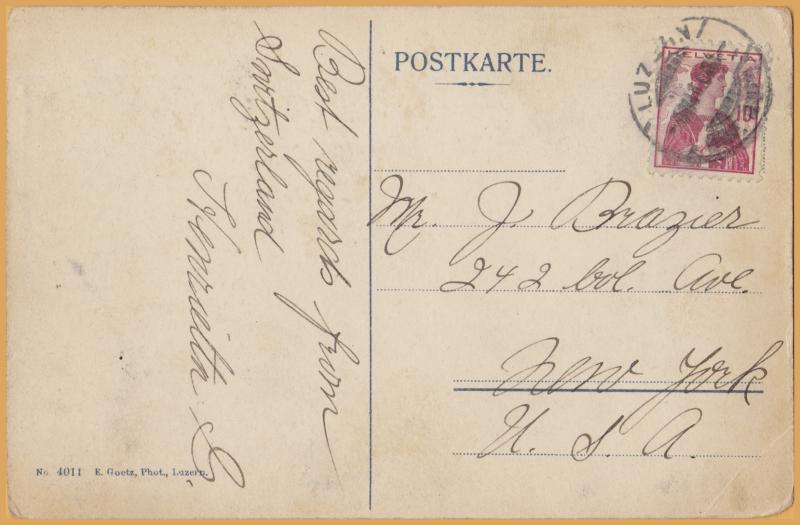 POSTKARTE.
HELVETIA
10
LUZ
Mr. J. Brazier
242 Col. Ave.
New York
U. S. A.
Best regards from
Switzerland
No. 4011 E. Goetz, Phot., Luzern.